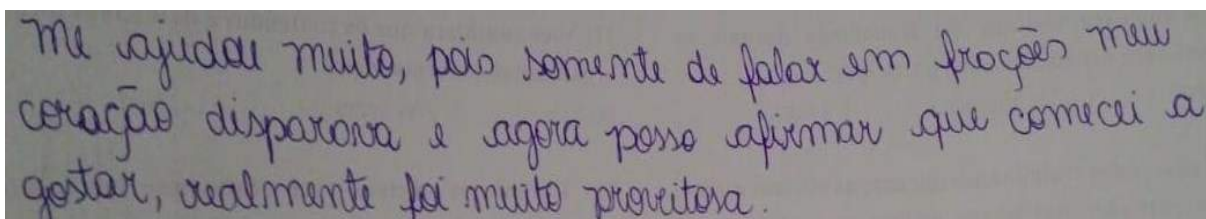 me ajudou muito, pois somente de falar em frações meu
coração disparava e agora posso afirmar que comecei a
gostar, realmente foi muito proveitosa.